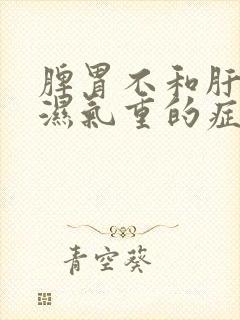 脾胃不和肝
濕氣重的症
青空葵